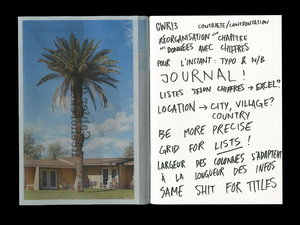 GWR13 CONTRASTE/CONFRONTATION
RÉORGANISATION CHAPITRE
DONNÉES AVEC CHIFFRES
POUR L'INSTANT: TYPO & N/B
JOURNAL!
LISTES SELON CHIFFRES → EXCEL?
LOCATION → CITY, VILLAGE?
COUNTRY
BE MORE PRECISE
GRID FOR LISTS!
LARGEUR DES COLONNES S'ADAPTENT
À LA LONGUEUR DES INFOS
SAME SHIT FOR TITLES